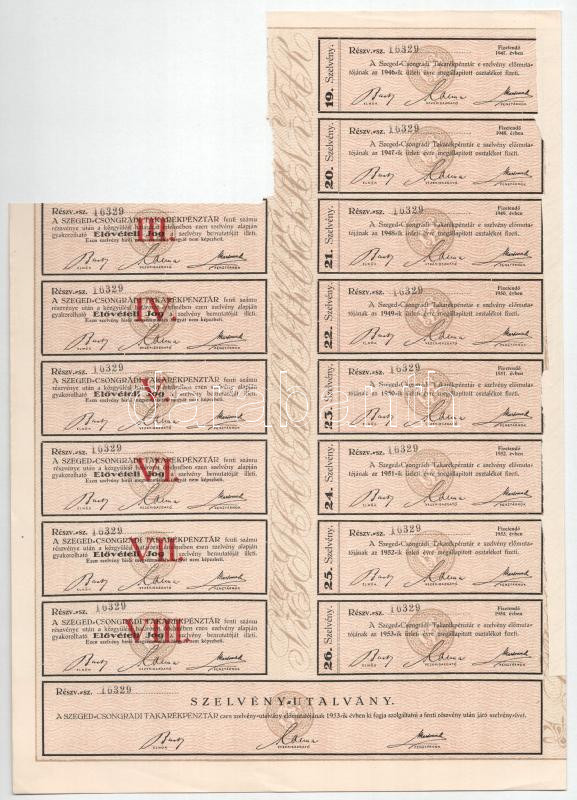 19. Szelvény.
Részv.-sz. 16329
Fizetendő
1947. évben
A Szeged-Csongrádi Takarékpénztár e szelvény előmuta-
tójának az 1946-ik üzleti évre megállapított osztalékot fizeti.
ELNÖK VEZÉRIGAZGATÓ PÉNZTÁRNOK
20. Szelvény.
Részv.-sz. 16329
Fizetendő
1948. évben
A Szeged-Csongrádi Takarékpénztár e szelvény előmuta-
tójának az 1947-ik üzleti évre megállapított osztalékot fizeti.
ELNÖK VEZÉRIGAZGATÓ PÉNZTÁRNOK
21. Szelvény.
Részv.-sz. 16329
Fizetendő
1949. évben
A Szeged-Csongrádi Takarékpénztár e szelvény előmuta-
tójának az 1948-ik üzleti évre megállapított osztalékot fizeti.
ELNÖK VEZÉRIGAZGATÓ PÉNZTÁRNOK
22. Szelvény.
Részv.-sz. 16329
Fizetendő
1950. évben
A Szeged-Csongrádi Takarékpénztár e szelvény előmuta-
tójának az 1949-ik üzleti évre megállapított osztalékot fizeti.
ELNÖK VEZÉRIGAZGATÓ PÉNZTÁRNOK
23. Szelvény.
Részv.-sz. 16329
Fizetendő
1951. évben
A Szeged-Csongrádi Takarékpénztár e szelvény előmuta-
tójának az 1950-ik üzleti évre megállapított osztalékot fizeti.
ELNÖK VEZÉRIGAZGATÓ PÉNZTÁRNOK
24. Szelvény.
Részv.-sz. 16329
Fizetendő
1952. évben
A Szeged-Csongrádi Takarékpénztár e szelvény előmuta-
tójának az 1951-ik üzleti évre megállapított osztalékot fizeti.
ELNÖK VEZÉRIGAZGATÓ PÉNZTÁRNOK
25. Szelvény.
Részv.-sz. 16329
Fizetendő
1953. évben
A Szeged-Csongrádi Takarékpénztár e szelvény előmuta-
tójának az 1952-ik üzleti évre megállapított osztalékot fizeti.
ELNÖK VEZÉRIGAZGATÓ PÉNZTÁRNOK
26. Szelvény.
Részv.-sz. 16329
Fizetendő
1954. évben
A Szeged-Csongrádi Takarékpénztár e szelvény előmuta-
tójának az 1953-ik üzleti évre megállapított osztalékot fizeti.
ELNÖK VEZÉRIGAZGATÓ PÉNZTÁRNOK
Részv.-sz. 16329
III.
A SZEGED-CSONGRÁDI TAKARÉKPÉNZTÁR fenti számú
részvénye után a közgyűlési határozat értelmében ezen szelvény alapján
gyakorolható Elővételi Jog szelvény bemutatóját illeti.
Ezen szelvény híján magát nem képezheti.
ELNÖK VEZÉRIGAZGATÓ PÉNZTÁRNOK
Részv.-sz. 16329
IV.
A SZEGED-CSONGRÁDI TAKARÉKPÉNZTÁR fenti számú
részvénye után a közgyűlési határozat értelmében ezen szelvény alapján
gyakorolható Elővételi Jog szelvény bemutatóját illeti.
ELNÖK VEZÉRIGAZGATÓ PÉNZTÁRNOK
Részv.-sz. 16329
V.
A SZEGED-CSONGRÁDI TAKARÉKPÉNZTÁR fenti számú
részvénye után a közgyűlési határozat értelmében ezen szelvény alapján
gyakorolható Elővételi Jog szelvény bemutatóját illeti.
ELNÖK VEZÉRIGAZGATÓ PÉNZTÁRNOK
Részv.-sz. 16329
VI.
A SZEGED-CSONGRÁDI TAKARÉKPÉNZTÁR fenti számú
részvénye után a közgyűlési határozat értelmében ezen szelvény alapján
gyakorolható Elővételi Jog szelvény bemutatóját illeti.
ELNÖK VEZÉRIGAZGATÓ PÉNZTÁRNOK
Részv.-sz. 16329
VII.
A SZEGED-CSONGRÁDI TAKARÉKPÉNZTÁR fenti számú
részvénye után a közgyűlési határozat értelmében ezen szelvény alapján
gyakorolható Elővételi Jog szelvény bemutatóját illeti.
ELNÖK VEZÉRIGAZGATÓ PÉNZTÁRNOK
Részv.-sz. 16329
VIII.
A SZEGED-CSONGRÁDI TAKARÉKPÉNZTÁR fenti számú
részvénye után a közgyűlési határozat értelmében ezen szelvény alapján
gyakorolható Elővételi Jog szelvény bemutatóját illeti.
ELNÖK VEZÉRIGAZGATÓ PÉNZTÁRNOK
Részv.-sz. 16329
SZELVÉNY-UTALVÁNY.
A SZEGED-CSONGRÁDI TAKARÉKPÉNZTÁR ezen szelvény-utalvány előmutatójának 1953-ik évben ki fogja szolgáltatni a fenti részvény után járó szelvény-ívet.
ELNÖK VEZÉRIGAZGATÓ PÉNZTÁRNOK
darabanth